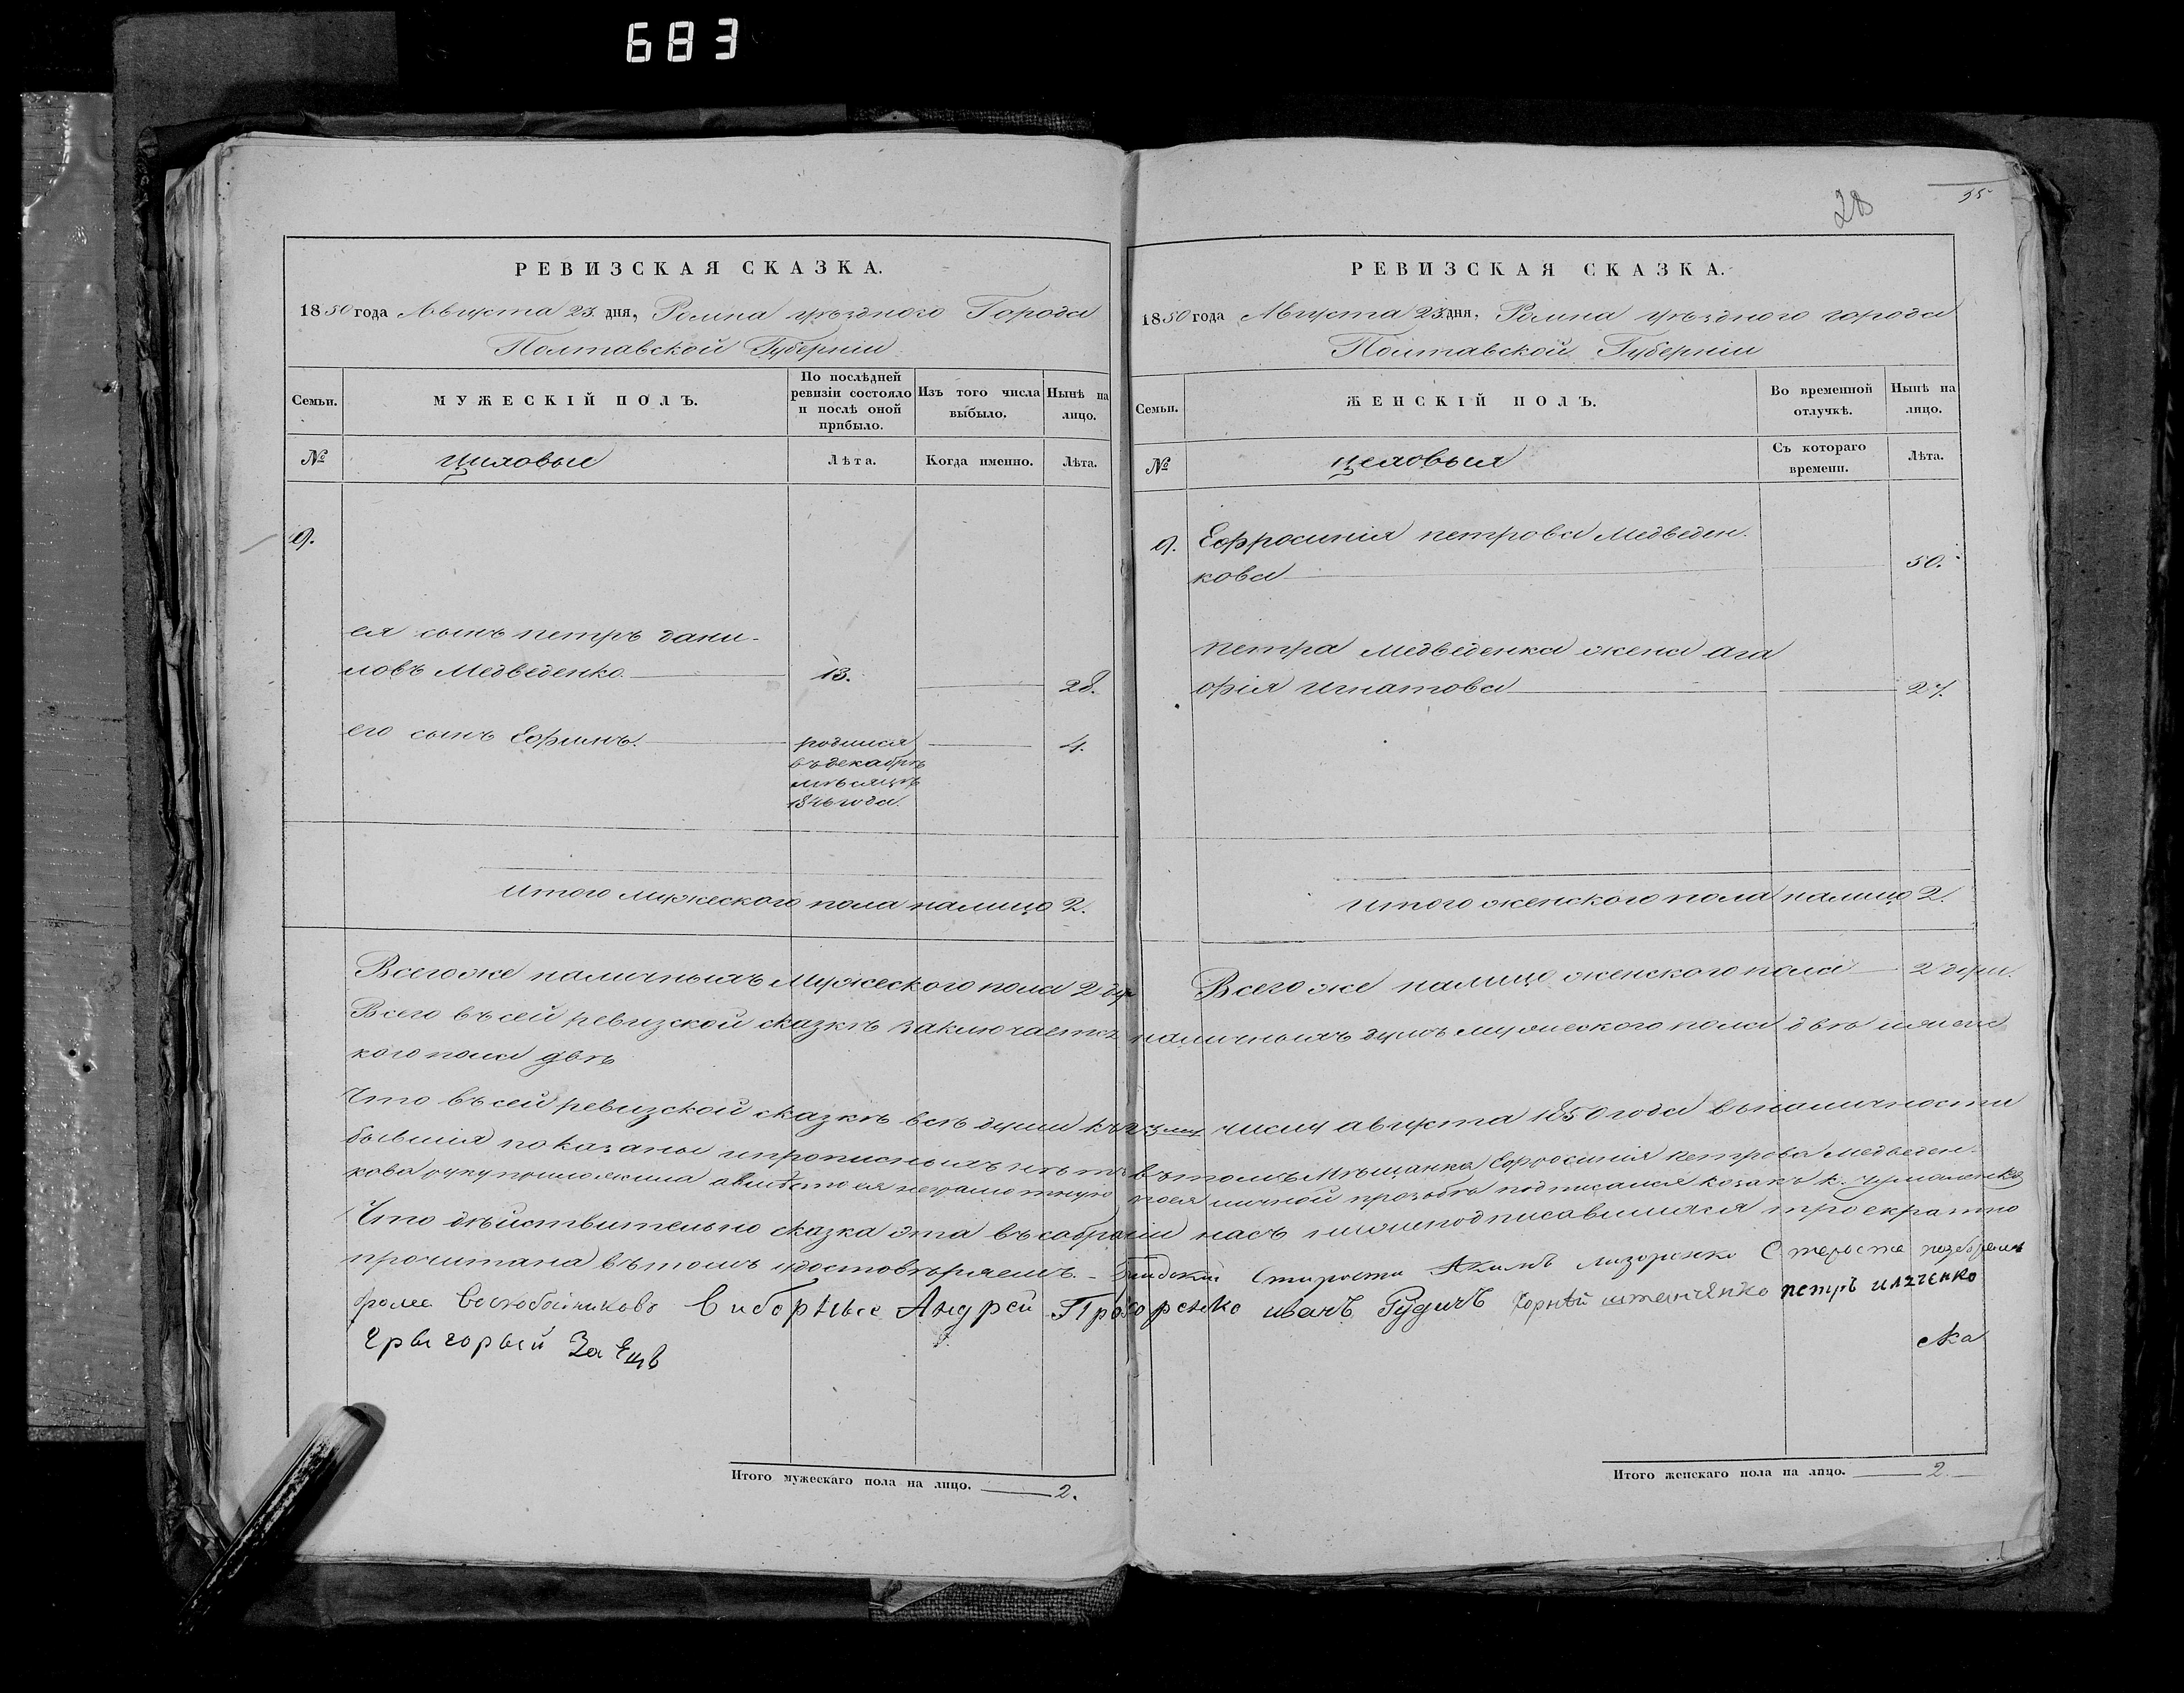 683
РЕВИЗСКАЯ СКАЗКА.
1850 года Августа 23. дня, Ромна уѣзднаго Города
Полтавской Губерніи
Семьи.
МУЖЕСКІЙ ПОЛЪ.
По послѣдней ревизіи состояло и послѣ оной прибыло.
Изъ того числа выбыло.
Нынѣ на лицо.
№
Цеховые
Лѣта.
Когда именно.
Лѣта.
9.
ея сынъ петръ дани-
ловъ Медведенко 13. 28.
его сынъ Ефимъ. родился 4.
въ декабрѣ
мѣсяцѣ
1846 года.
итого мужеского пола налицо 2.
Итого мужескаго пола на лицо. 2.
28 35
РЕВИЗСКАЯ СКАЗКА.
1850 года Августа 23 дня, Ромна уѣздного города
Полтавской Губерніи
Семьи.
ЖЕНСКІЙ ПОЛЪ.
Во временной отлучкѣ.
Нынѣ на лицо.
№
цеховыя
Съ котораго времени.
Лѣта.
9. Ефросинія петрова Медведен.
кова 50.
петра медведенка жена ага
фія игнатова 27.
итого женского пола налицо 2.
Всего же наличныхъ Мужеского пола 2 ду Всего же налицо женского пола 2 души.
Всего въ сей ревизской сказкѣ заключается наличныхъ душъ мужеского пола двѣ и женс
кого пола двѣ
Что въ сей ревизской сказкѣ всѣ души къ 23 му числу августа 1850 года в наличности
бывшія показаны и прописныхъ нѣтъ въ томъ Мѣщанка Ефросинія петрова медведен.
кова руку приложила а вместо ея неграмотную по ея личной прозьбѣ подписался козакъ
Что дѣйствительно сказка эта въ собраніи насъ нижеподписавшихся троекратно
прочитана въ томъ удостовѣряемъ. Староста Акимъ лазоренко Староста
Виборные Андрей иванъ Рудичъ петръ иляченко
Грыгорый Заецъ
ска
Итого женскаго пола на лицо. 2.